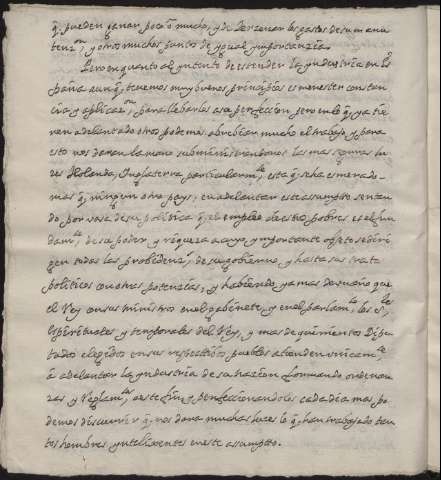 q̃. pueden ganar poco ò mucho, y de los zonas los gastos de su manu
tenz.ⁿ, y otros muchos puntos de ygual ymportanzia.
Pero en quanto al yntento de estender la yndustria en Es
paña aunq̃. tenemos muy buenos principios es menester constan
cia y aplicaz.ⁿ, para llebarlos a su perfeccion, pero en lo q̃. ya tie
nen adelantado otros podemos abrebiar mucho el trabajo, y para
esto nos daran la mano subministrandonos las mas seguras lu
ces Holanda, Ynglaterra particularm.te, esta q̃. se ha esmerado
mas q̃. ningun otro pays, en adelantar este assumpto sentan
do por vasa de su politica q̃. el empleo de estos pobres es el fun
dam.to, de su poder, y riqueza a cuyo ymportante objeto se diri
gen todas las probidenz.s, de su gobierno, y hasta sus trata
politicos con otras potencias, y habiendo, ya mas de un año que
el Rey con sus ministros en el gabinete, y en el parlam.to, los S.res
espirituales y temporales del Rey, y mas de quinientos Dipu
tados elegidos en sus respectibos pueblos atienden unicam.te
à adelantar la yndustria de su nazion formando ordenan
zas y Reglam.tos, a este fin, y perfeccionandolos cada dia mas, po
demos discurrir q̃. nos dara muchas luces lo q̃. han trabajado tan
tos hombres ynteligentes en este assumpto.